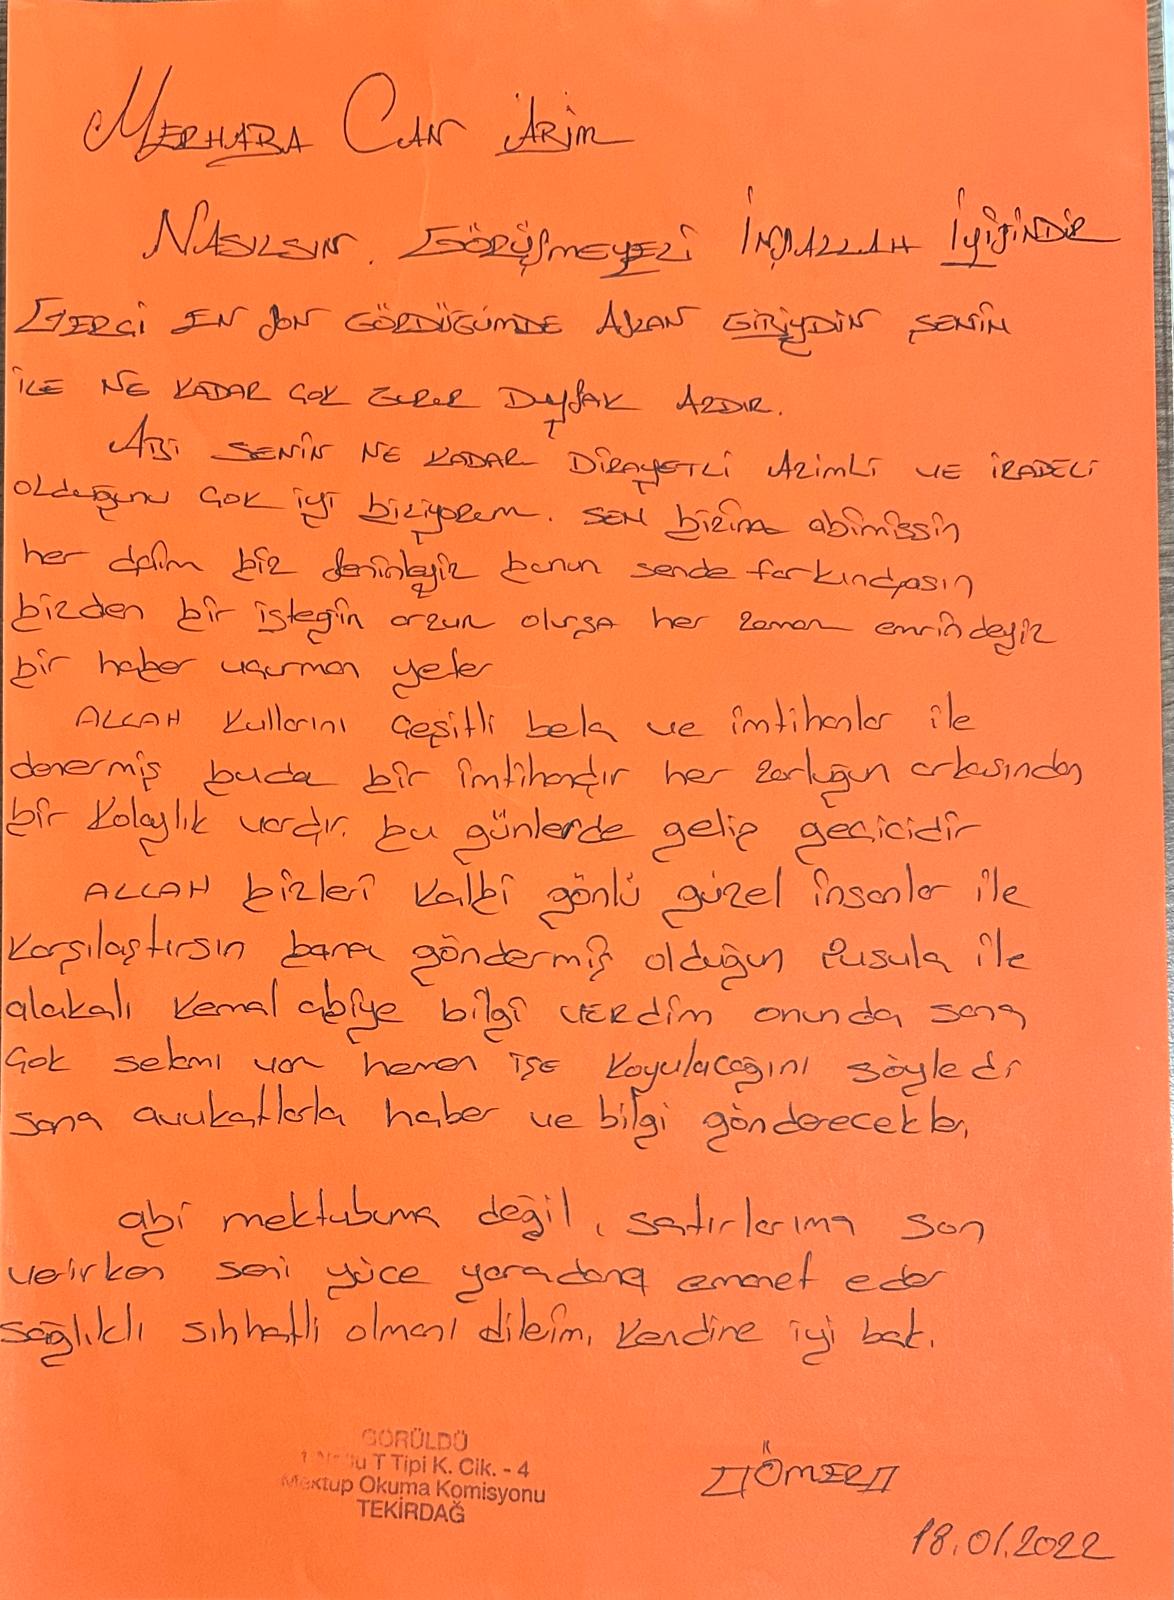 MERHABA CAN ABİM
NASILSIN. GÖRÜŞMEYELİ İNŞALLAH İYİSİNDİR
GERÇİ EN SON GÖRDÜĞÜMDE ASLAN GİBİYDİN SENİN
İLE NE KADAR ÇOK GURUR DUYSAK AZDIR.
ABİ SENİN NE KADAR DİRAYETLİ AZİMLİ VE İRADELİ
olduğunu çok iyi biliyorum. SEN bizim abimissin
her daim biz seninleyiz bunun sende farkındasın
bizden bir isteğin arzun olursa her zaman emrindeyiz
bir haber uçurman yeter
ALLAH kullarını çeşitli bela ve imtihanlar ile
denermiş buda bir imtihandır her zorluğun arkasından
bir kolaylık vardır. bu günlerde gelip geçicidir
ALLAH bizleri kalbi gönlü güzel insanlar ile
karşılaştırsın bana göndermiş olduğun pusula ile
alakalı kemal abiye bilgi VERdim onunda sana
çok selamı var hemen işe koyulacağını söyledi
sana avukatlarla haber ve bilgi gönderecekler,
abi mektubuma değil, satırlarıma son
verirken seni yüce yaradana emanet eder
sağlıklı sıhhatli olmanı dilerim, kendine iyi bak.
GÖRÜLDÜ
1 Nolu T Tipi K. Cik. - 4
Mektup Okuma Komisyonu
TEKİRDAĞ
ÖMER
18.01.2022